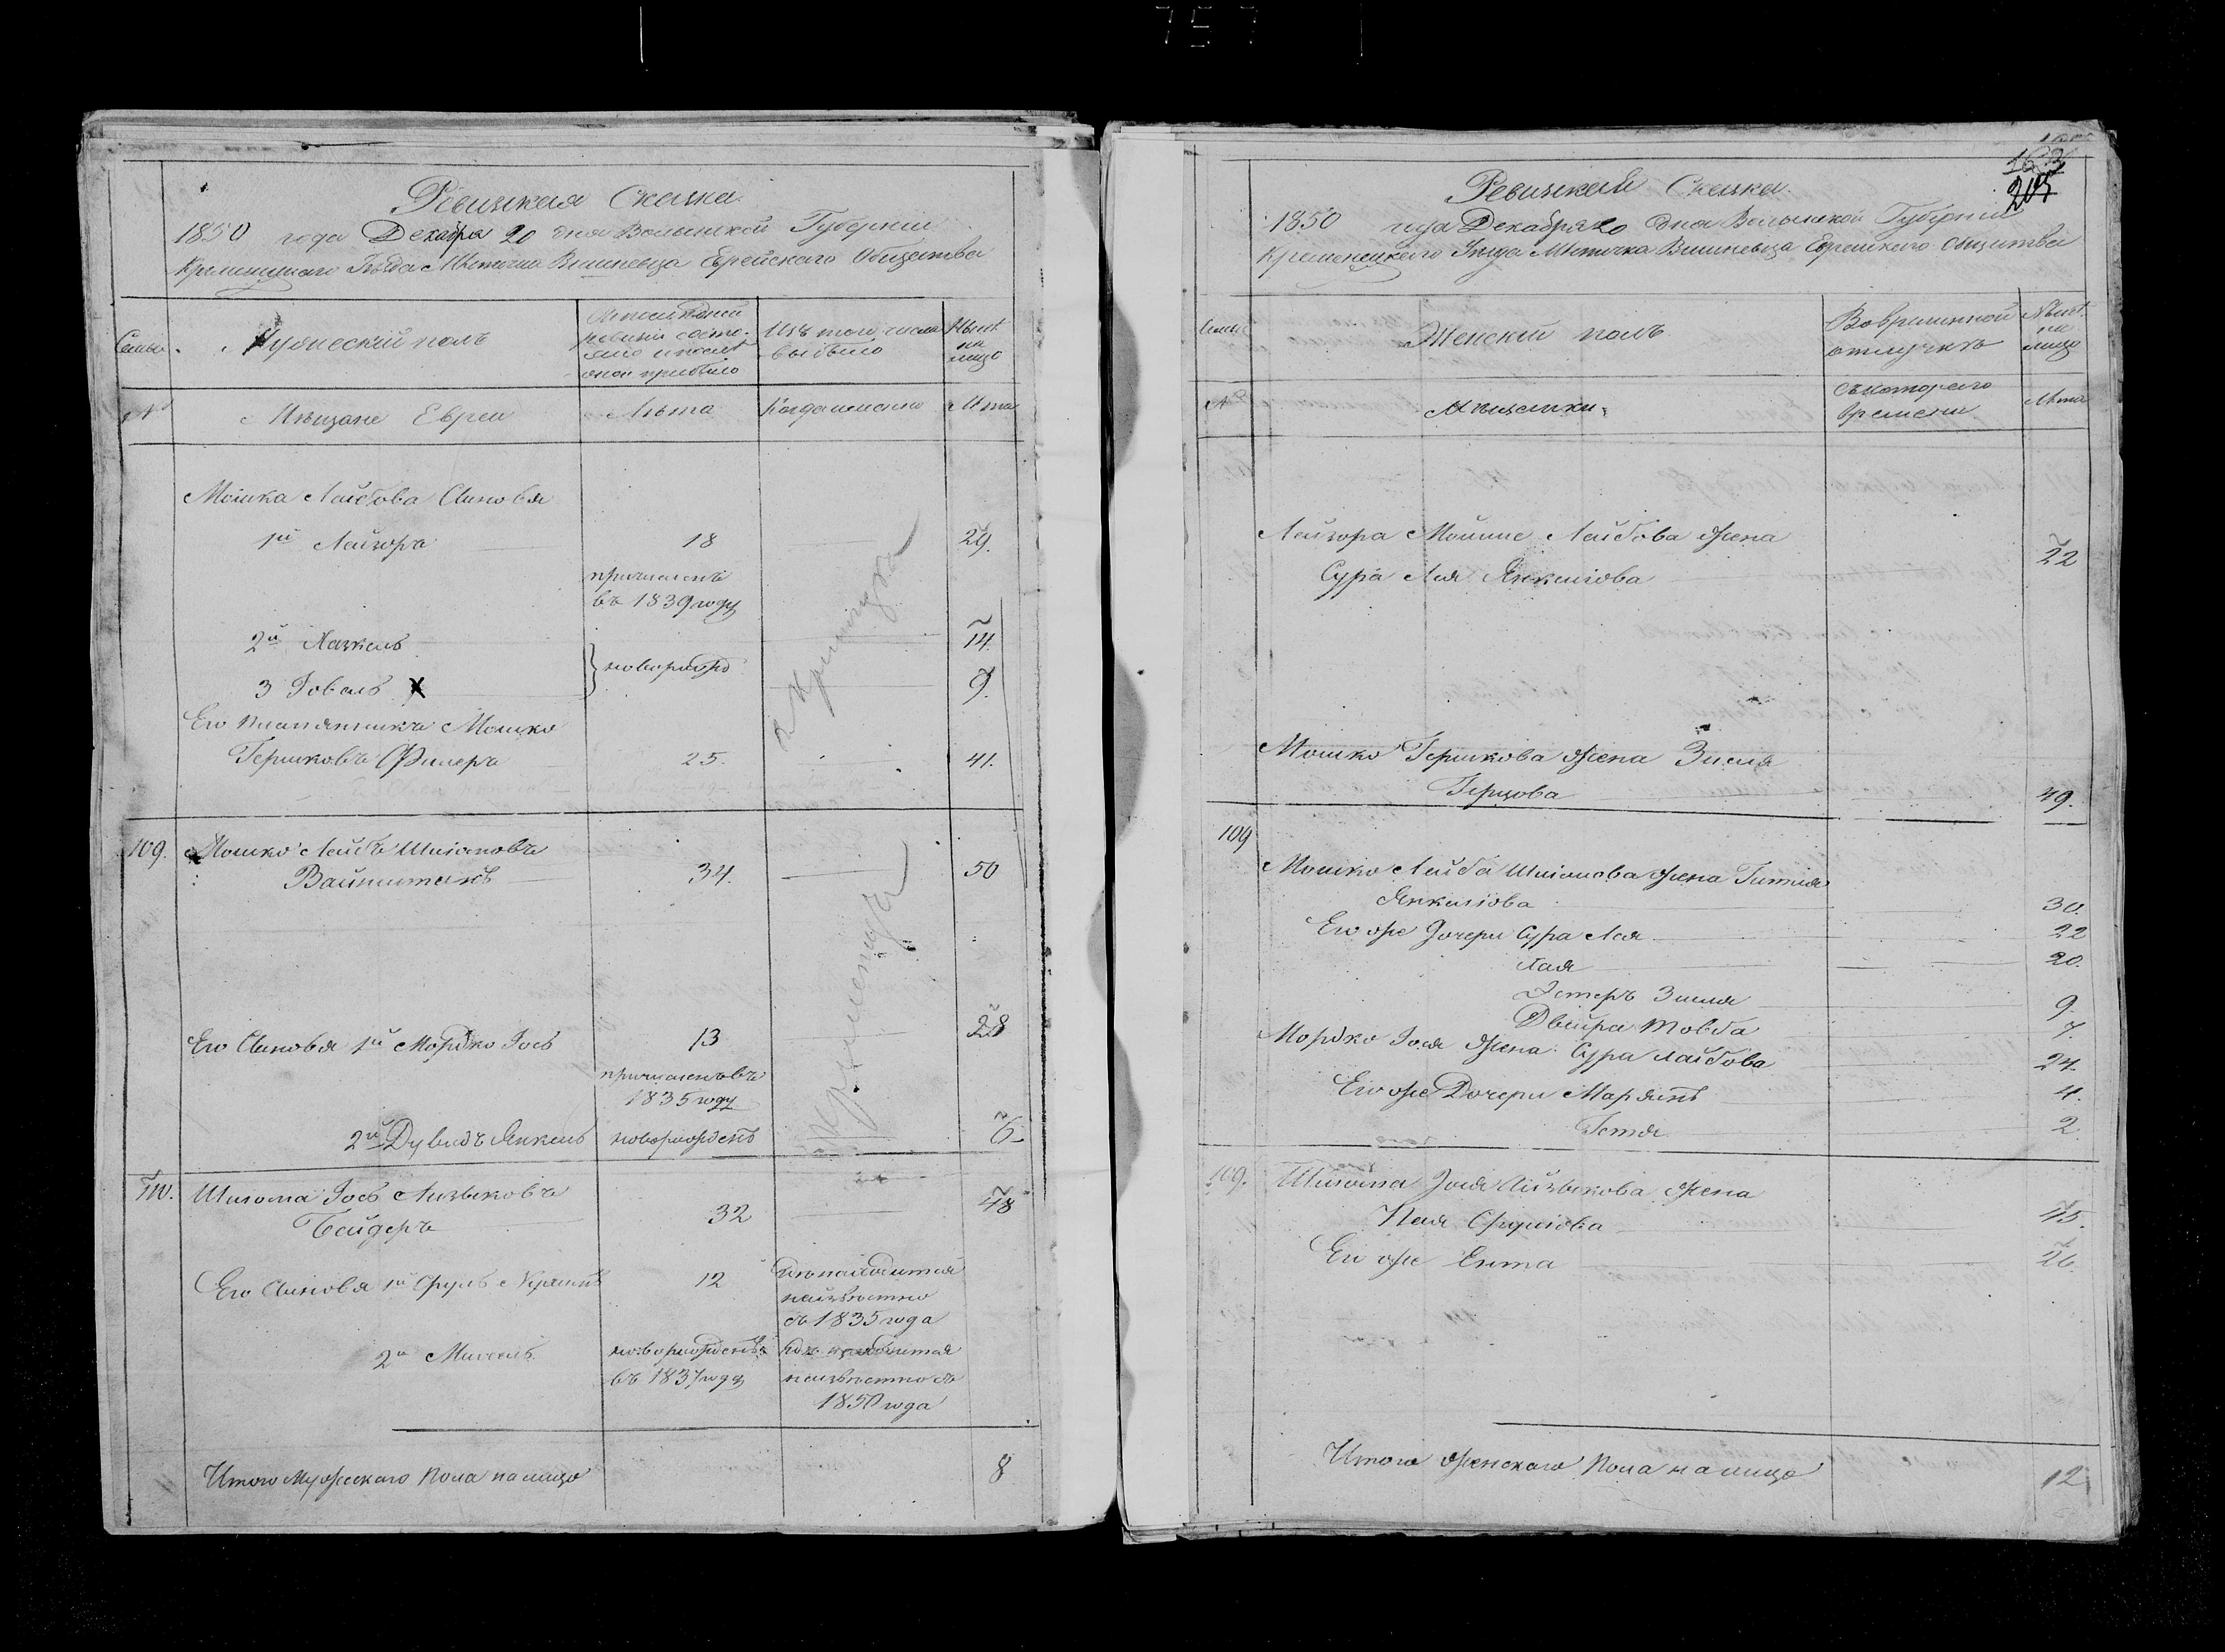 757
Ревизская Сказка
1850 года Декабря 20 дня Волынской Губерніи
Кременецкаго Уѣзда Мѣстечка Вишневца Еврейскаго Общества
Семьи
Мужескій полъ
По последней
ревизіи состо-
яло и после
оной прибыло
Изъ того числа
выбыло
Нынѣ
на
лицо
№
Мѣщане Евреи
Лѣта
Когда именно
Лѣта
Мошка Лейбова Сыновья
1й Лейзоръ 18 29.
причисленъ
въ 1839 году
2й Хаскель 14.
3 Іовель X новорожд 9.
Его племянникъ Мошко
Гершковъ Фишеръ 25. 41.
109. Мошко Лейбъ Шліомовъ
Вайнштейнъ 34. 50
Его Сыновья 1й Мордко Іось 13 28
причисленъ въ
1835 году
2й Дувидъ Янкель новорожденъ 6
110. Шліома Іось Айзыковъ
Бейдеръ 32 48
Его Сыновья 1й Сруль 12 Где находится
неизвѣстно
съ 1835 года
2й новорожденъ где находится
въ 1837 году неизвѣстно съ
1850 года
Итого Мужескаго Пола на лицо 8
205
Ревизская Сказка
1850 года Декабря 20 дня Волынской Губерніи
Кременецкаго Уѣзда Мѣстечка Вишневца Еврейскаго Общества
Семьи
Женскій полъ
Во временной
отлучкѣ
Нынѣ
на
лицо
№
Мѣщанки
Съ котораго
времени
Лѣта
Лейзора Мошке Лейбова жена
Сура Лея Янкеліова 22
Мошко Гершкова жена Зисля
Герцова 49.
109
Мошко Лейба Шліомова жена Гитля
Янкеліова 30.
Его же Дочери Сура Лея 22
Хая 20.
Эстеръ Зисля 9.
Двейра Товба 7.
Мордко Іося жена Сура Лейбова 24.
Его же Дочери Марьямъ 4.
Гетя 2.
109. Шліома Іося Айзыкова жена
Песя Сруліова 45.
Его же Ента 26.
Итого женскаго Пола на лицо 12